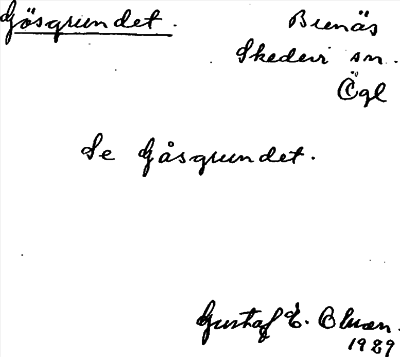 Gösgrundet. Brenäs
Skedevi sn.
Ögl
Se Gåsgrundet.
Gustaf E. Olson.
1929